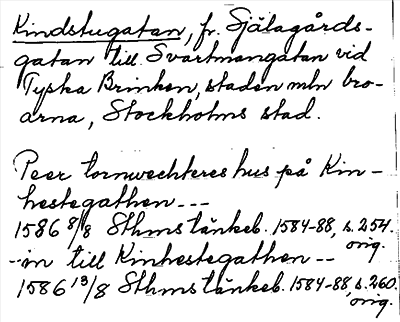 Kindstugatan, fr. Själagårds-
gatan till Svartmangatan vid
Tyska Brinken, staden mln bro-
arna, Stockholms stad.
Peer tornwechteres hus på Kin-
hestegathen ---
1586 8/8 Sthms tänkeb. 1584-88, s. 254.
orig.
--in till Kinhestegathen --
1586 13/8 Sthms tänkeb. 1584-88, s. 260.
orig.